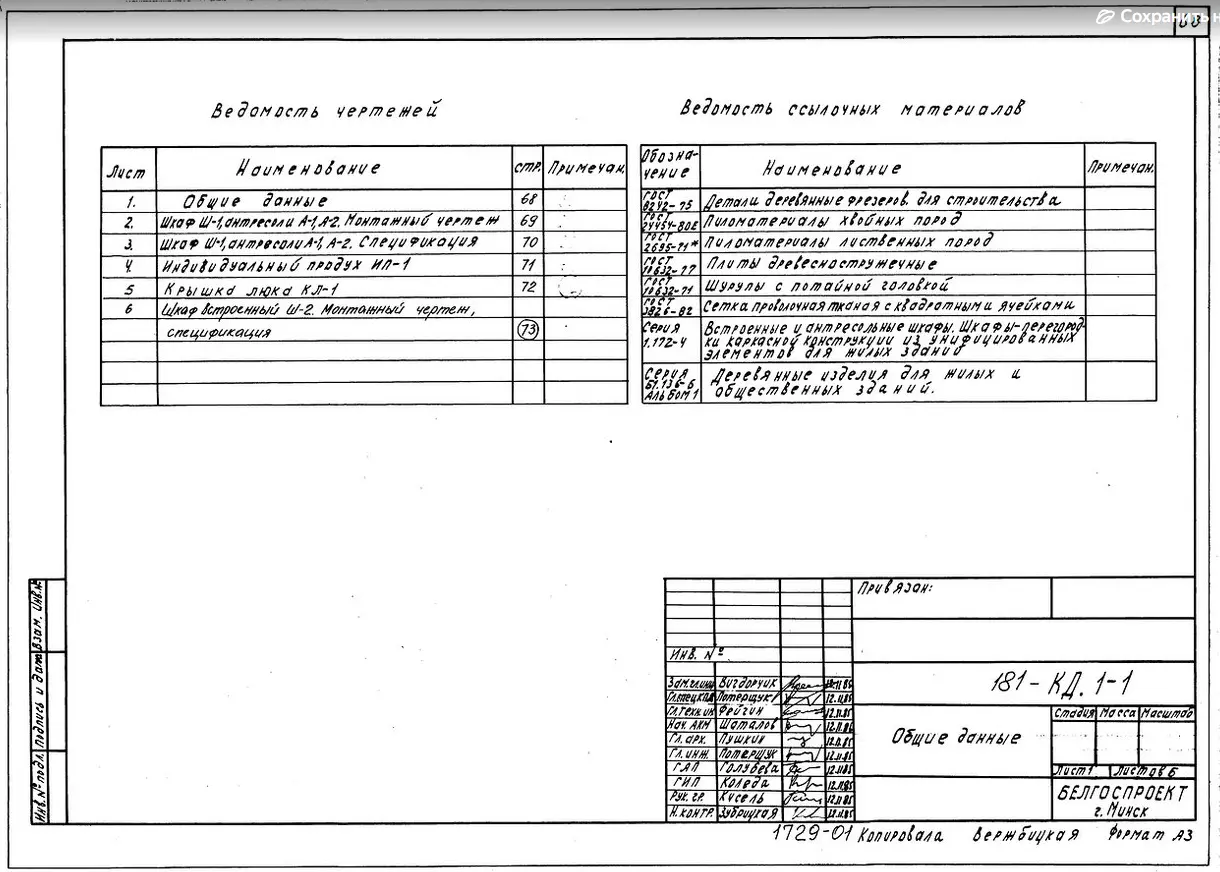 Сохранить
68
Ведомость чертежей
Лист Наименование стр. Примечан.
1. Общие данные 68
2. Шкаф Ш-1, антресоли А-1, А-2. Монтажный чертеж 69
3. Шкаф Ш-1, антресоли А-1, А-2. Спецификация 70
4. Индивидуальный продух ИП-1 71
5 Крышка люка КЛ-1 72
6 Шкаф встроенный Ш-2. Монтажный чертеж,
спецификация 73
Ведомость ссылочных материалов
Обозна-
чение Наименование Примечан.
ГОСТ
8242-75 Детали деревянные фрезеров. для строительства
ГОСТ
24454-80Е Пиломатериалы хвойных пород
ГОСТ
2695-71* Пиломатериалы лиственных пород
ГОСТ
10632-77 Плиты древесностружечные
ГОСТ
10632-71 Шурупы с потайной головкой
ГОСТ
3826-82 Сетка проволочная тканая с квадратными ячейками.
Серия
1.172-4
Встроенные и антресольные шкафы. Шкафы-перегород-
ки каркасной конструкции из унифицированных
элементов для жилых зданий
Серия
Б1.136-6
Альбом 1
Деревянные изделия для жилых и
общественных зданий.
Привязан:
Инв. №
181-КД. 1-1
Вигдорчик
Потерщук 12.11.85
Гл.техн.ин Фейгин 12.11.85
Нач. АКМ Шаталов 12.11.85
Гл. арх. Пушкин 12.11.85
Гл. инж. Потерщук 12.11.85
ГАП Голубева 12.11.85
ГИП Коледа 12.11.85
Рук. гр. Кисель 12.11.85
Н.контр. Зубрицкая 12.11.85
Общие данные
Стадия Масса Масштаб
Лист 1 Листов 6
БЕЛГОСПРОЕКТ
г. Минск
1729-01 Копировала Вержбицкая Формат А3
Взам. инв.№
Подпись и дата
Инв.№подл.